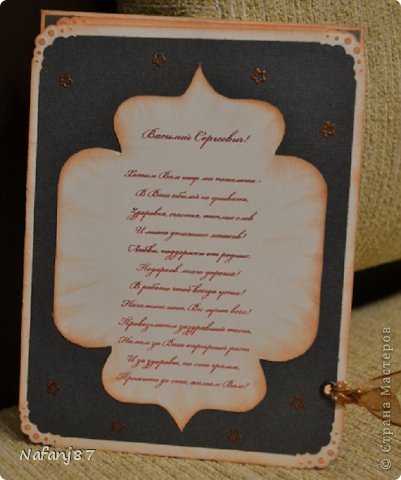 Василий Сергеевич!
Хотим Вам шеф мы пожелать -
В Ваш юбилей не унывать,
Здоровья, счастья, теплых слов
И много денежных мешков!
Любви, поддержки от родных,
Подарков много дорогих!
В работе чтоб всегда успех!
Начальник наш, Вы лучше всех!
Провозгласим заздравный тост,
Нальем за Ваш карьерный рост
И за здоровье, по сто грамм,
Прожить до ста, желаем Вам!
Nafanj87
© Страна Мастеров